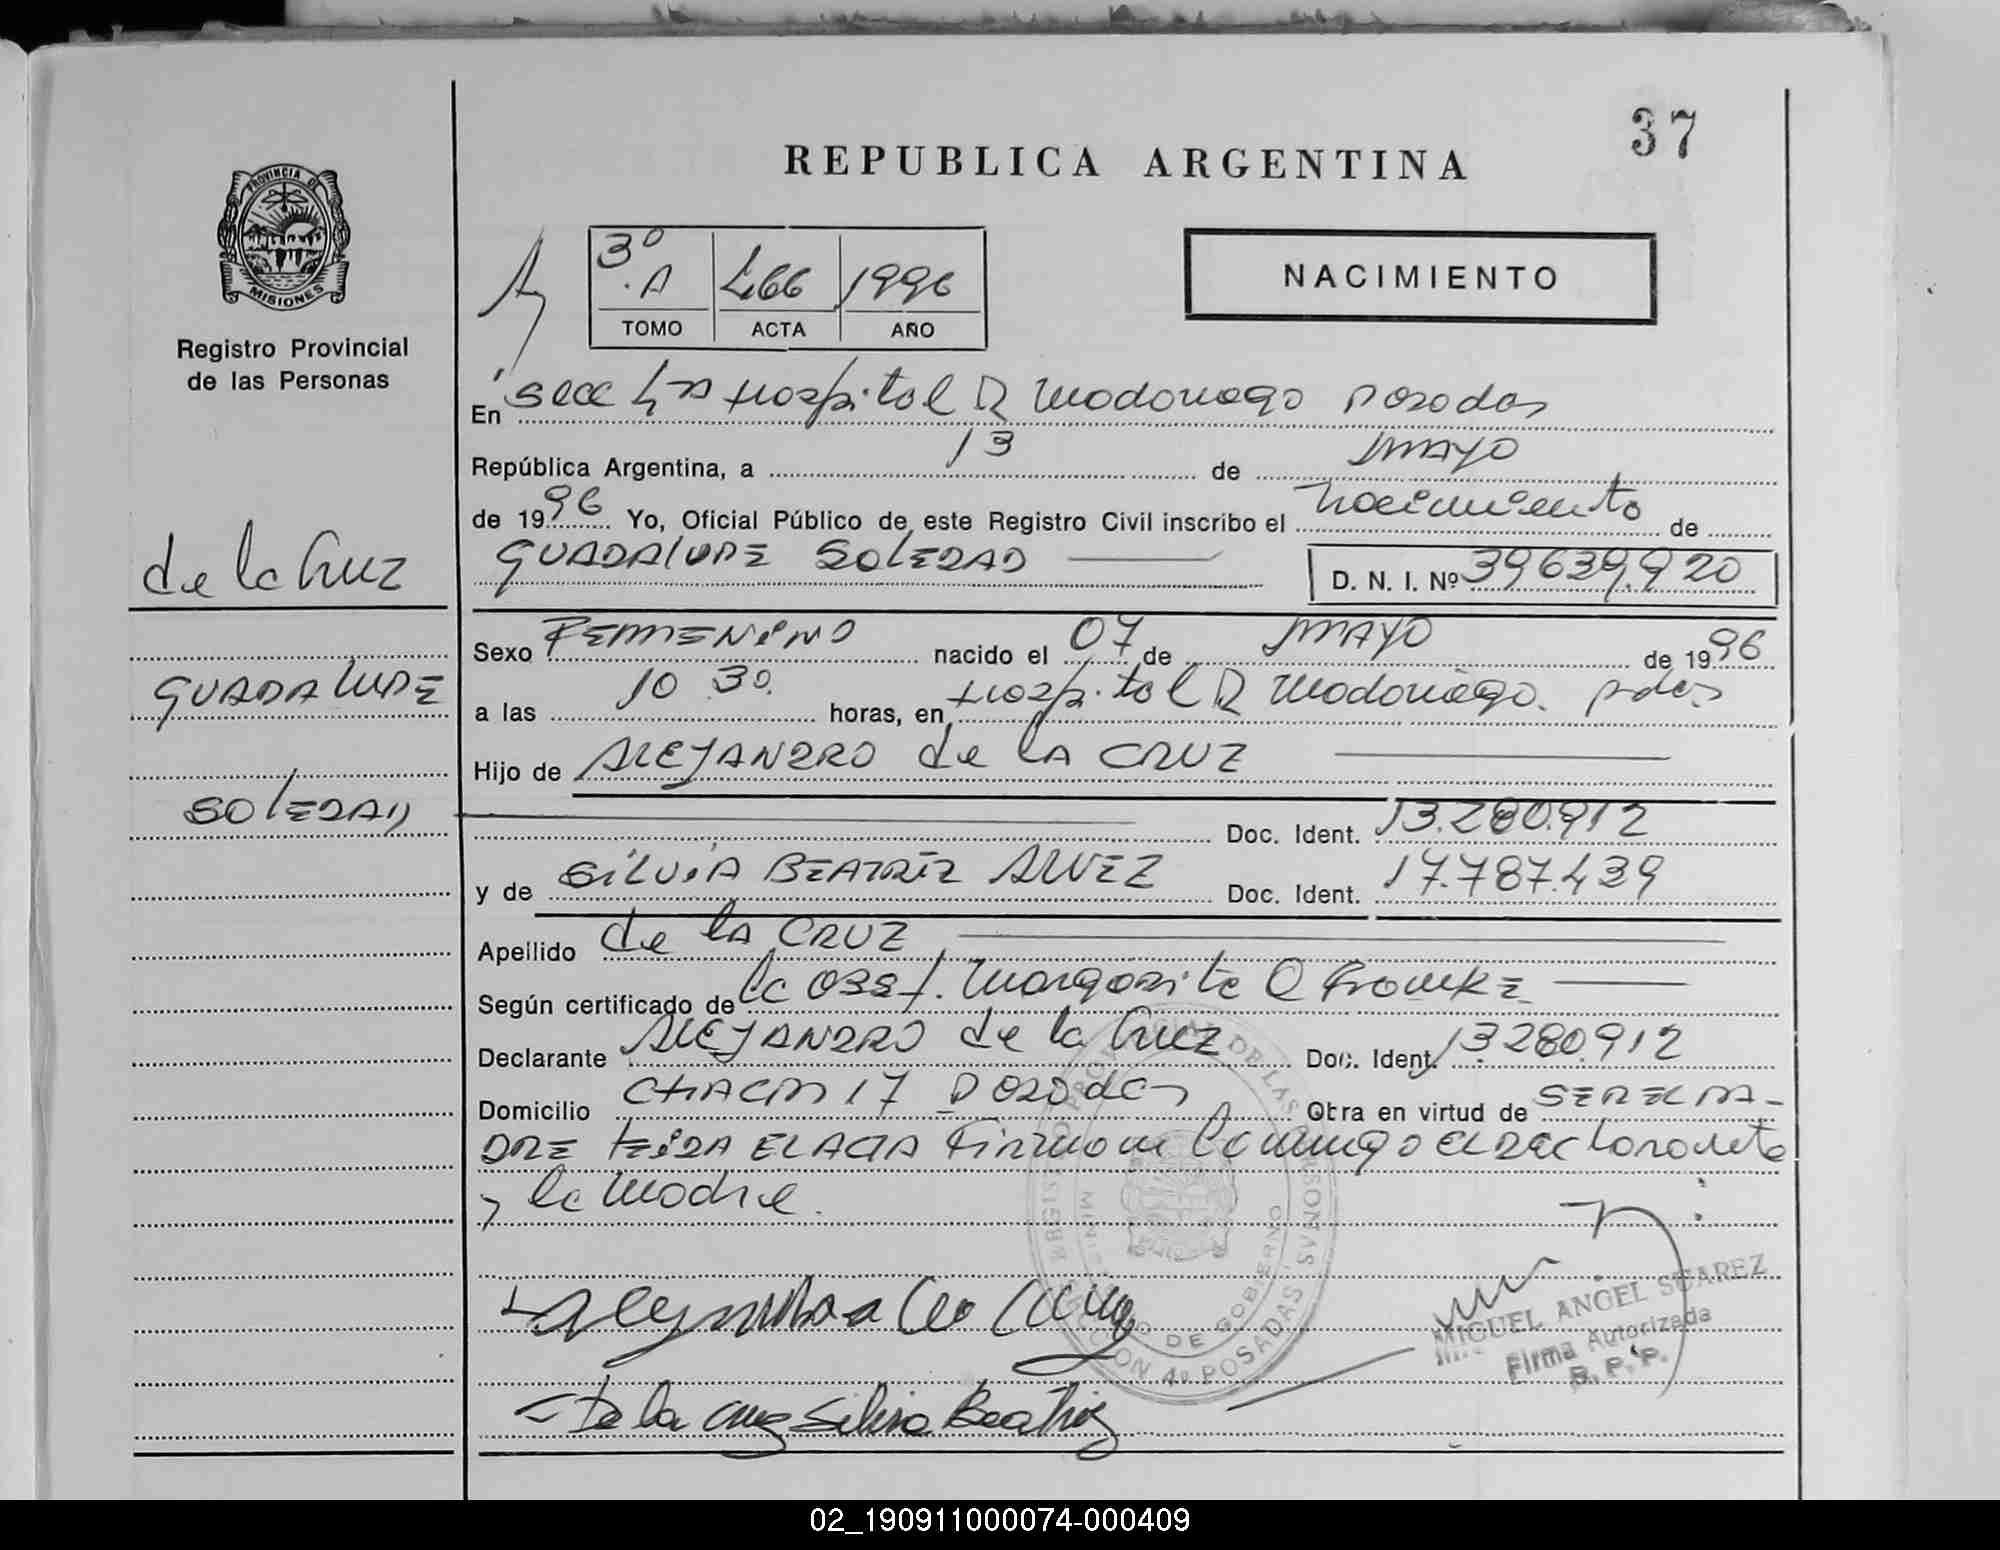 37
REPUBLICA ARGENTINA
PROVINCIA DE
MISIONES
Registro Provincial
de las Personas
3º A 466 1996
TOMO ACTA AÑO
NACIMIENTO
En Secc 4ta Hospital R Madariaga Posadas
República Argentina, a 13 de MAYO
de 1996 Yo, Oficial Público de este Registro Civil inscribo el nacimiento de
GUADALUPE SOLEDAD D. N. I. Nº 39639.920
de la Cruz
GUADALUPE
SOLEDAD
Sexo FEMENINO nacido el 07 de MAYO de 1996
a las 10 30. horas, en Hospital R Madariaga. pdas
Hijo de ALEJANDRO de LA CRUZ
Doc. Ident. 13.280.912
y de SILVIA BEATRIZ ALVEZ Doc. Ident. 17.787.439
Apellido de LA CRUZ
Según certificado de la Obst. Margarita Q
Declarante ALEJANDRO de la Cruz Doc. Ident. 13280.912
Domicilio CHACRA 17 Posadas Obra en virtud de SER EL PA-
DRE LEIDA EL ACTA Firman conmigo EL DECLARANTE
y la Madre.
Alejandro de la Cruz
De la Cruz Silvia Beatriz
REGISTRO PROVINCIAL DE LAS PERSONAS
SECCION 4a POSADAS
DE GOBIERNO
MIGUEL ANGEL SUAREZ
Firma Autorizada
R. P. P.
02_190911000074-000409